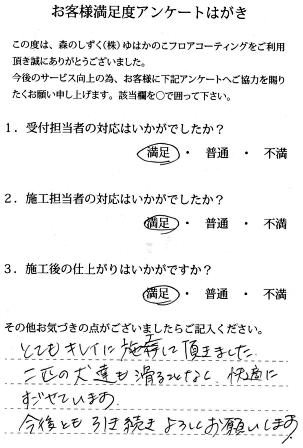 お客様満足度アンケートはがき
この度は、森のしずく(株)ゆはかのこフロアコーティングをご利用
頂き誠にありがとうございました。
今後のサービス向上の為、お客様に下記アンケートへご協力を賜り
たくお願い申し上げます。該当欄を○で囲って下さい。
1．受付担当者の対応はいかがでしたか？
満足 ・ 普通 ・ 不満
2．施工担当者の対応はいかがでしたか？
満足 ・ 普通 ・ 不満
3．施工後の仕上がりはいかがですか？
満足 ・ 普通 ・ 不満
その他お気づきの点がございましたらご記入ください。
とてもキレイに施工して頂きました
二匹の犬達も滑ることなく 快適に
すごせています
今後とも 引き続き よろしくお願いします